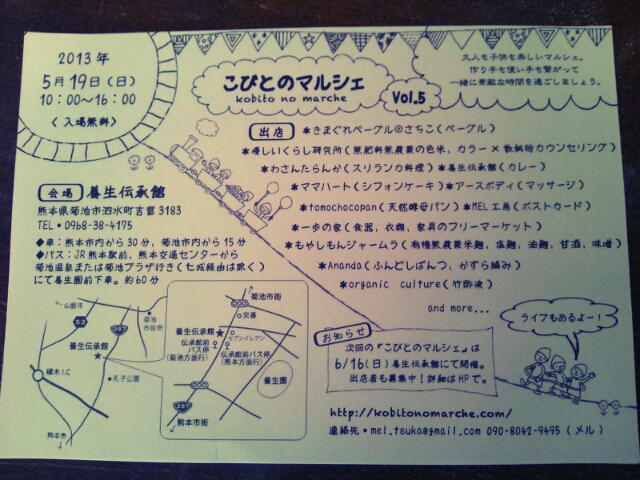 2013年
5月19日(日)
10:00〜16:00
〈入場無料〉
こびとのマルシェ
kobito no marche
Vol.5
大人も子供も楽しいマルシェ。
作り手も使い手も繋がって
一緒に素敵な時間を過ごしましょう。
出店
*きまぐれベーグル@さちこ(ベーグル)
*優しいくらし研究所(無肥料無農薬の色米、カラー×数秘術カウンセリング)
*わさんたらんか(スリランカ料理) *養生伝承館(カレー)
*ママハート(シフォンケーキ) *アースボディ(マッサージ)
*tomochocopan(天然酵母パン) *MEL工房(ポストカード)
*一歩の家(食器、衣類、家具のフリーマーケット)
*もやしもんジャームラ(有機無農薬米麹、塩麹、油麹、甘酒、味噌)
*Ananda(ふんどしぱんつ、かずら編み)
*organic culture(竹酢液)
and more...
会場 養生伝承館
熊本県菊池市泗水町吉富3183
TEL・0968-38-4175
◆車:熊本市内から30分、菊池市内から15分
◆バス:JR熊本駅前、熊本交通センターから
菊池温泉または菊池プラザ行き(七城経由は除く)
にて養生園前下車。約60分
山鹿市
53
387
菊池市役所
養生伝承館
植木I.C
孔子公園
熊本市
菊池市街
交番
養生伝承館
セブンイレブン
伝承館前バス停(菊池方面行)
伝承館前バス停(熊本方面行)
養生園
387
熊本市街
お知らせ
次回の『こびとのマルシェ』は
6/16(日)養生伝承館にて開催。
出店者も募集中!詳細はHPで。
ライブもあるよー!
http://kobitonomarche.com/
連絡先・mel.tsuka@gmail.com 090-8042-9495(メル)